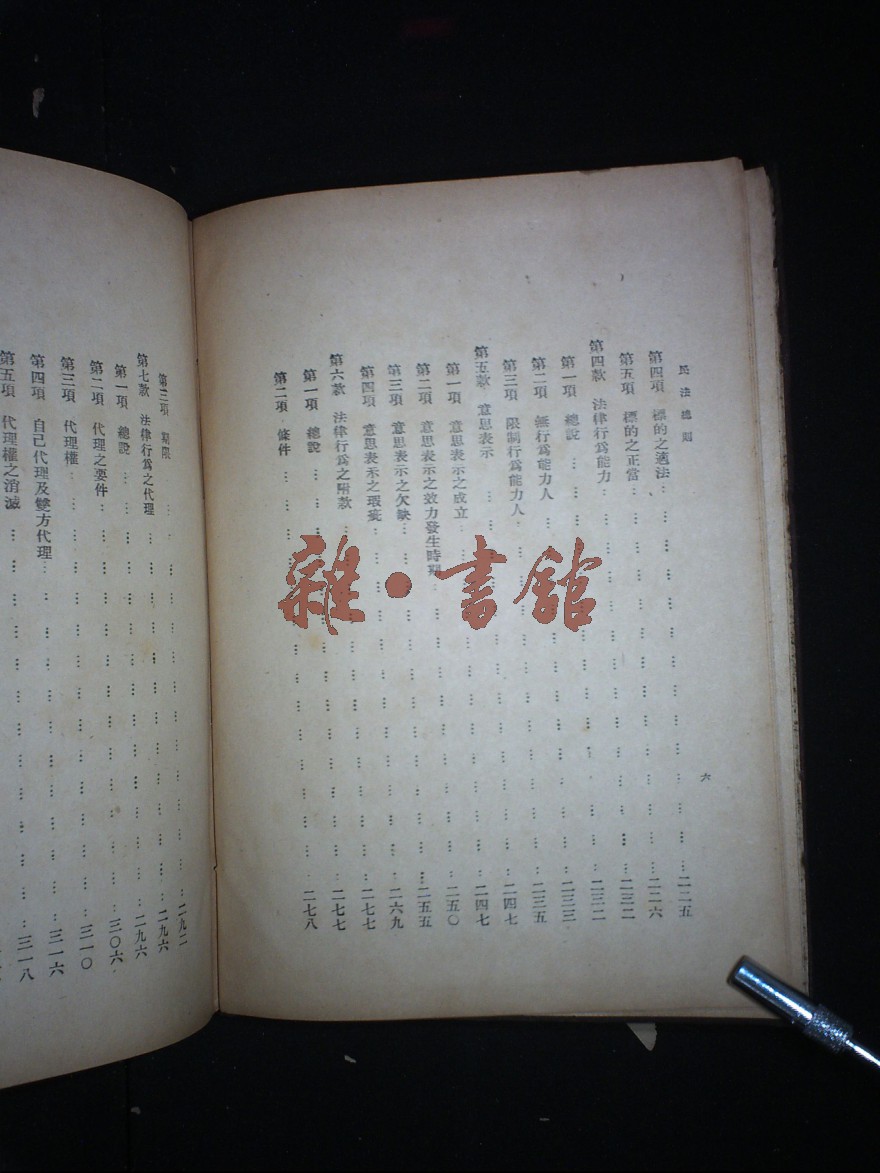 民法總則
六
第四項 標的之適法…………二二五
第五項 標的之正當…………二二六
第四款 法律行爲能力…………二三二
第一項 總說…………二三二
第二項 無行爲能力人…………二三三
第三項 限制行爲能力人…………二三五
第五款 意思表示…………二四七
第一項 意思表示之成立…………二四七
第二項 意思表示之效力發生時期…………二五〇
第三項 意思表示之欠缺…………二五五
第四項 意思表示之瑕疵…………二六九
第六款 法律行爲之附款…………二七七
第一項 總說…………二七七
第二項 條件…………二七八
第三項 期限…………二九二
第七款 法律行爲之代理…………二九六
第一項 總說…………二九六
第二項 代理之要件…………三〇六
第三項 代理權…………三一〇
第四項 自己代理及雙方代理…………三一六
第五項 代理權之消滅…………三一八
雜·書館